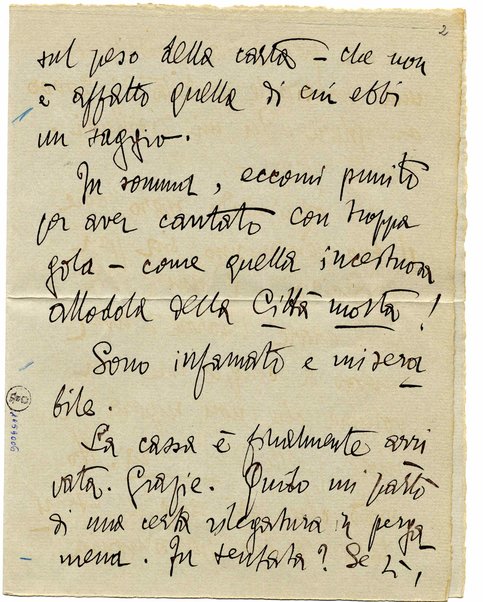 2
sul peso della carta – che non
è affatto quella di cui ebbi
un saggio.
In somma, eccomi punito
per aver cantato con troppa
gola – come quella incestuosa
allodola della Città morta!
Sono infamato e misera
bile.
La cassa è finalmente arri
vata. Grazie. Guido mi parlò
di una certa rilegatura in perga
mena. In sentata? Se sì,